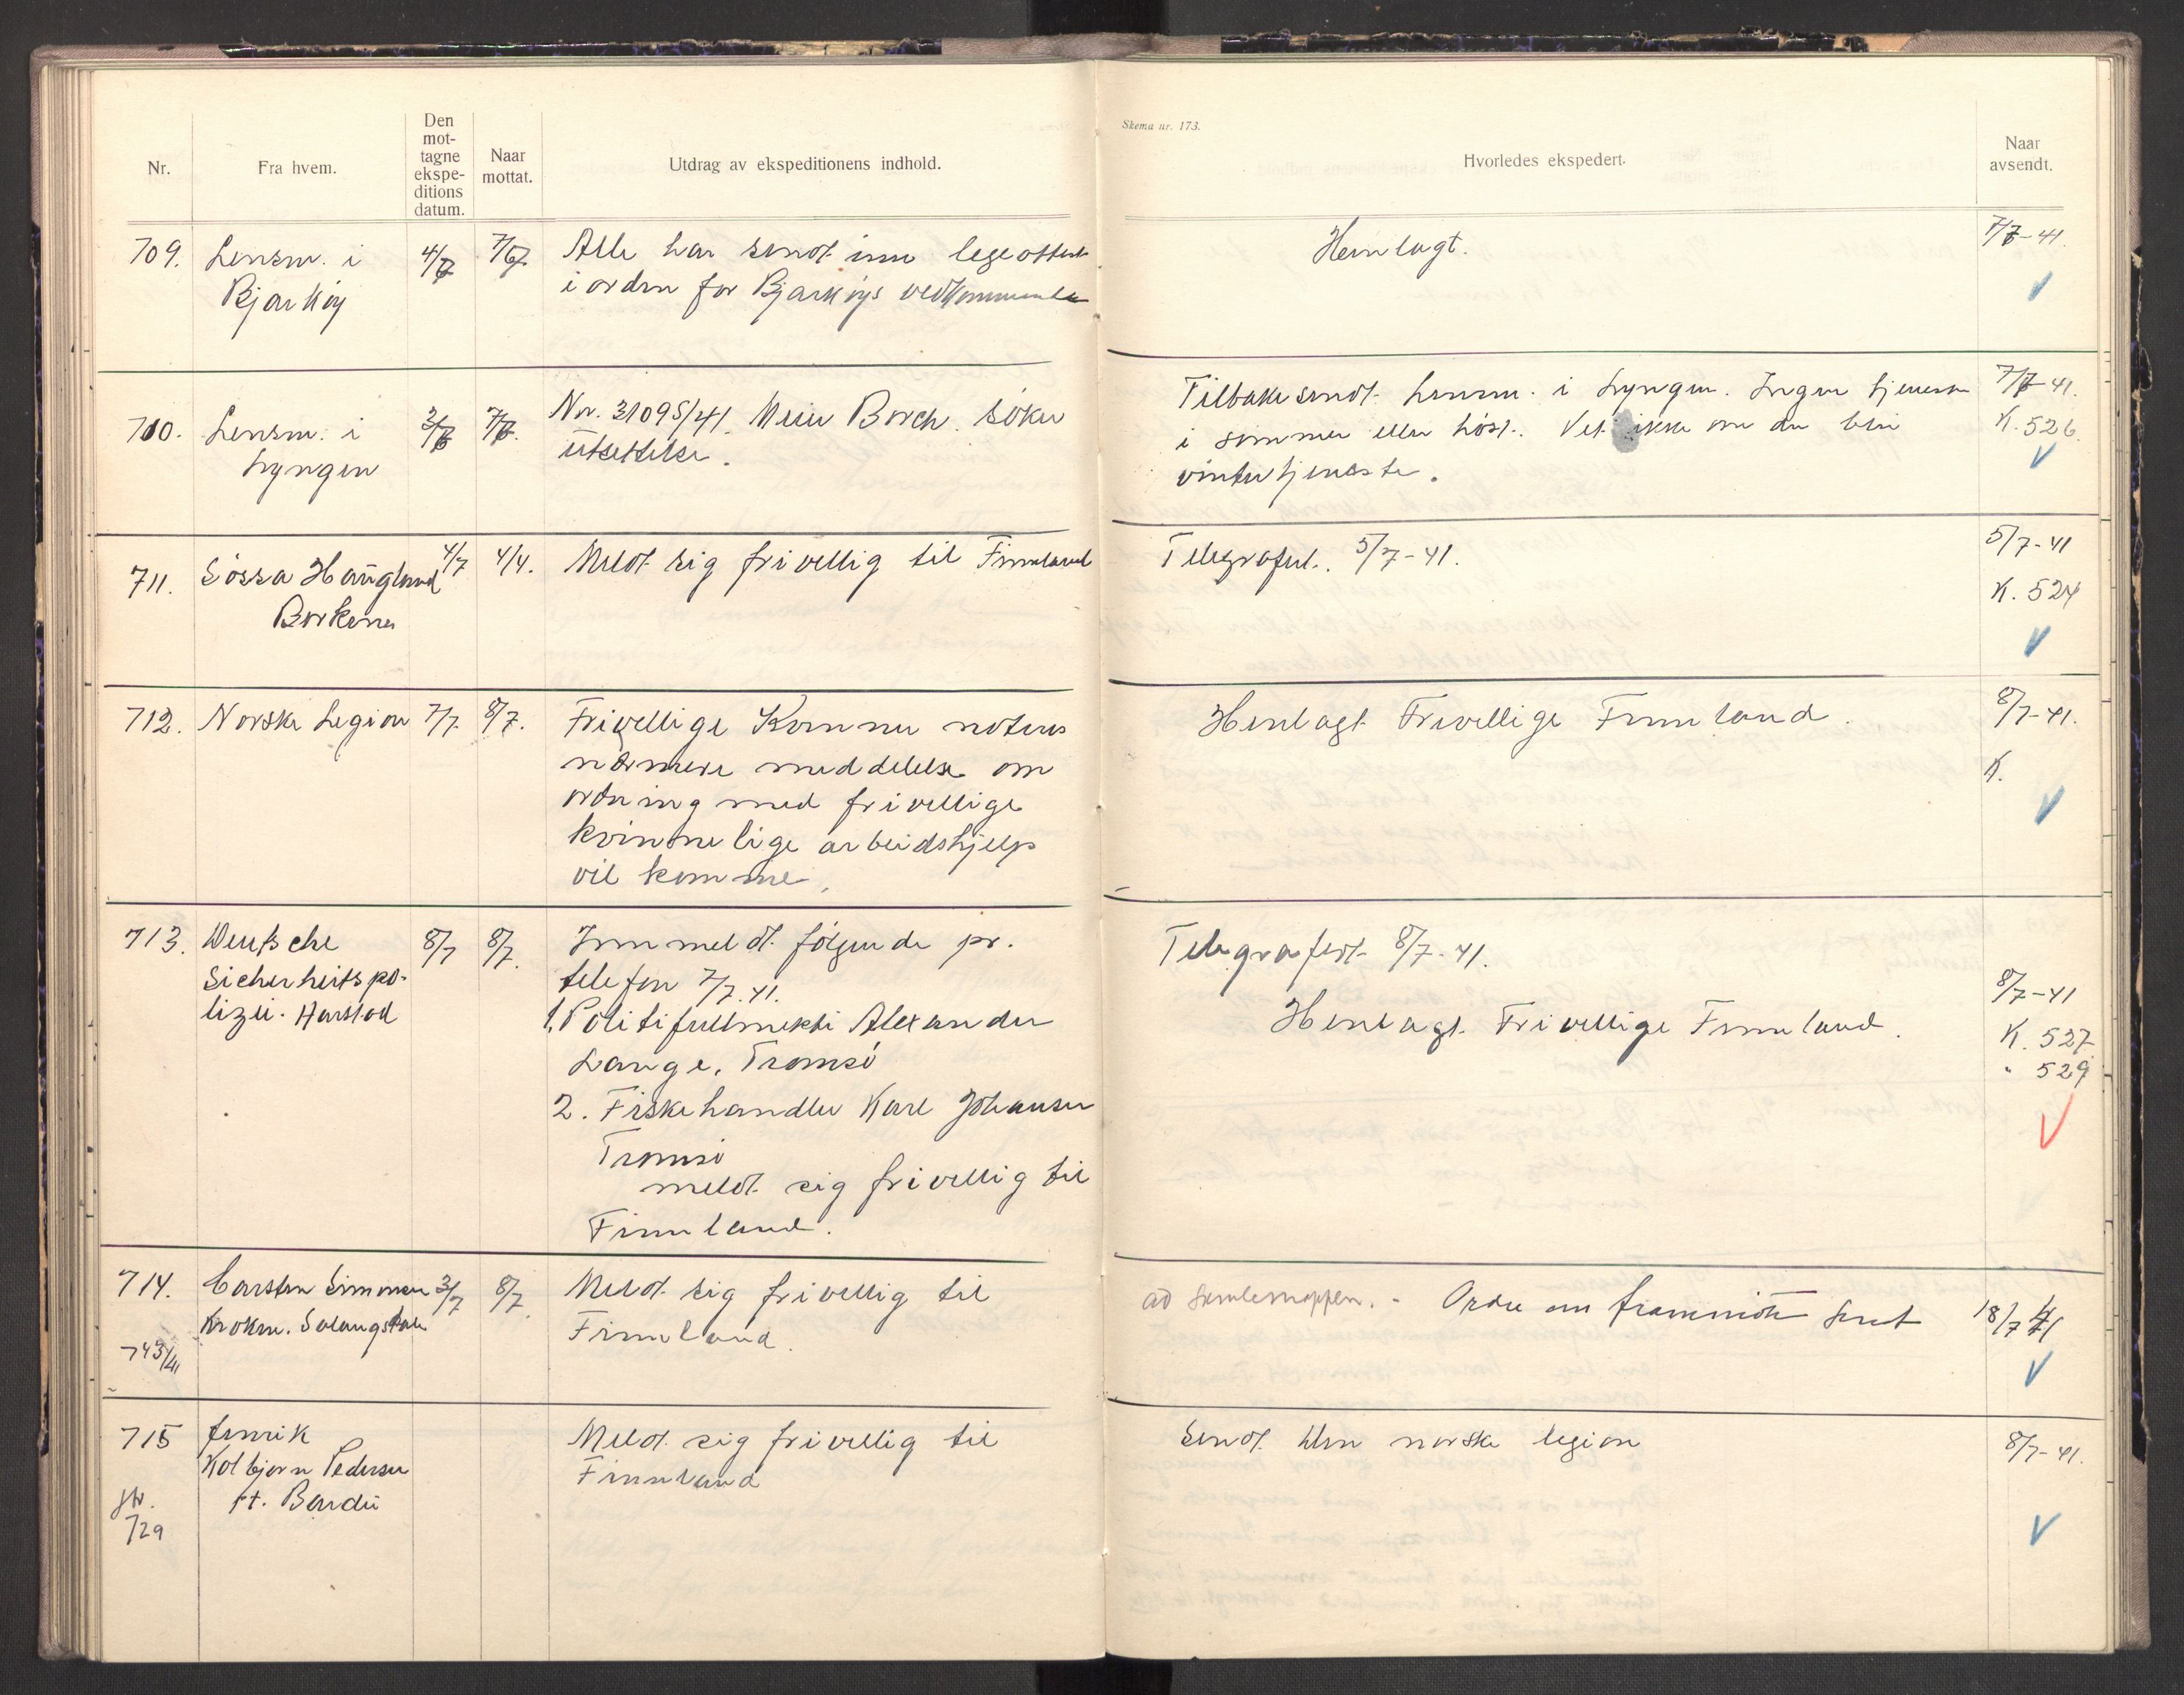 Nr.
Fra hvem.
Den
mot-
tagne
ekspe-
ditions
datum.
Naar
mottat.
Utdrag av ekspeditionens indhold.
Skema nr. 173.
Hvorledes ekspedert.
Naar
avsendt.
709. Lensm. i 4/7 7/7 Alle har sendt inn legeattest
Bjarköy i orden for Bjarköys vedkommende
Henlagt. 7/7-41.
710. Lensm. i 3/7 7/7. Nr. 31095/41. Borch. söker
Lyngen utsettelse.
Tilbakesendt lensm. i Lyngen. Ingen tjeneste 7/7-41.
i sommer eller höst. Vet ikke om det blir K. 526.
vintertjeneste.
711. Sössa Haugland 4/7 4/4. Meldt sig frivillig til Finnland
Borkenes
Telegrafert. 5/7-41. 5/7-41
K. 524
712. Norske Legion 7/7. 8/7. Frivillige Kvinner noteres
nærmere meddelelse om
ordning med frivillige
kvinnelige arbeidshjelp
vil komme.
Henlagt Frivillige Finnland. 8/7-41.
K.
713. Deutsche 8/7 8/7. Innmeldt følgende pr.
Sicherheitspo- telefon 7/7.41.
lizei. Harstad 1. Politifullmektig Alexander
Lange, Tromsö
2. Fiskehandler Karl Johansen
Tromsö
meldt sig frivillig til
Finnland.
Telegrafert 8/7-41.
8/7-41
Henlagt Frivillige Finnland. K. 527
" 529
714. Carsten Simonsen 3/7 8/7 Meldt sig frivillig til
Krokm. Salangsdal Finnland.
743/41
ad samlemappen. - Ordre om frammöte sendt 18/7 41
715 Fenrik Meldt sig frivillig til
Kolbjørn Pedersen Finnland
Jr. pt. Bardu
729
Sendt Den norske legion 8/7-41.